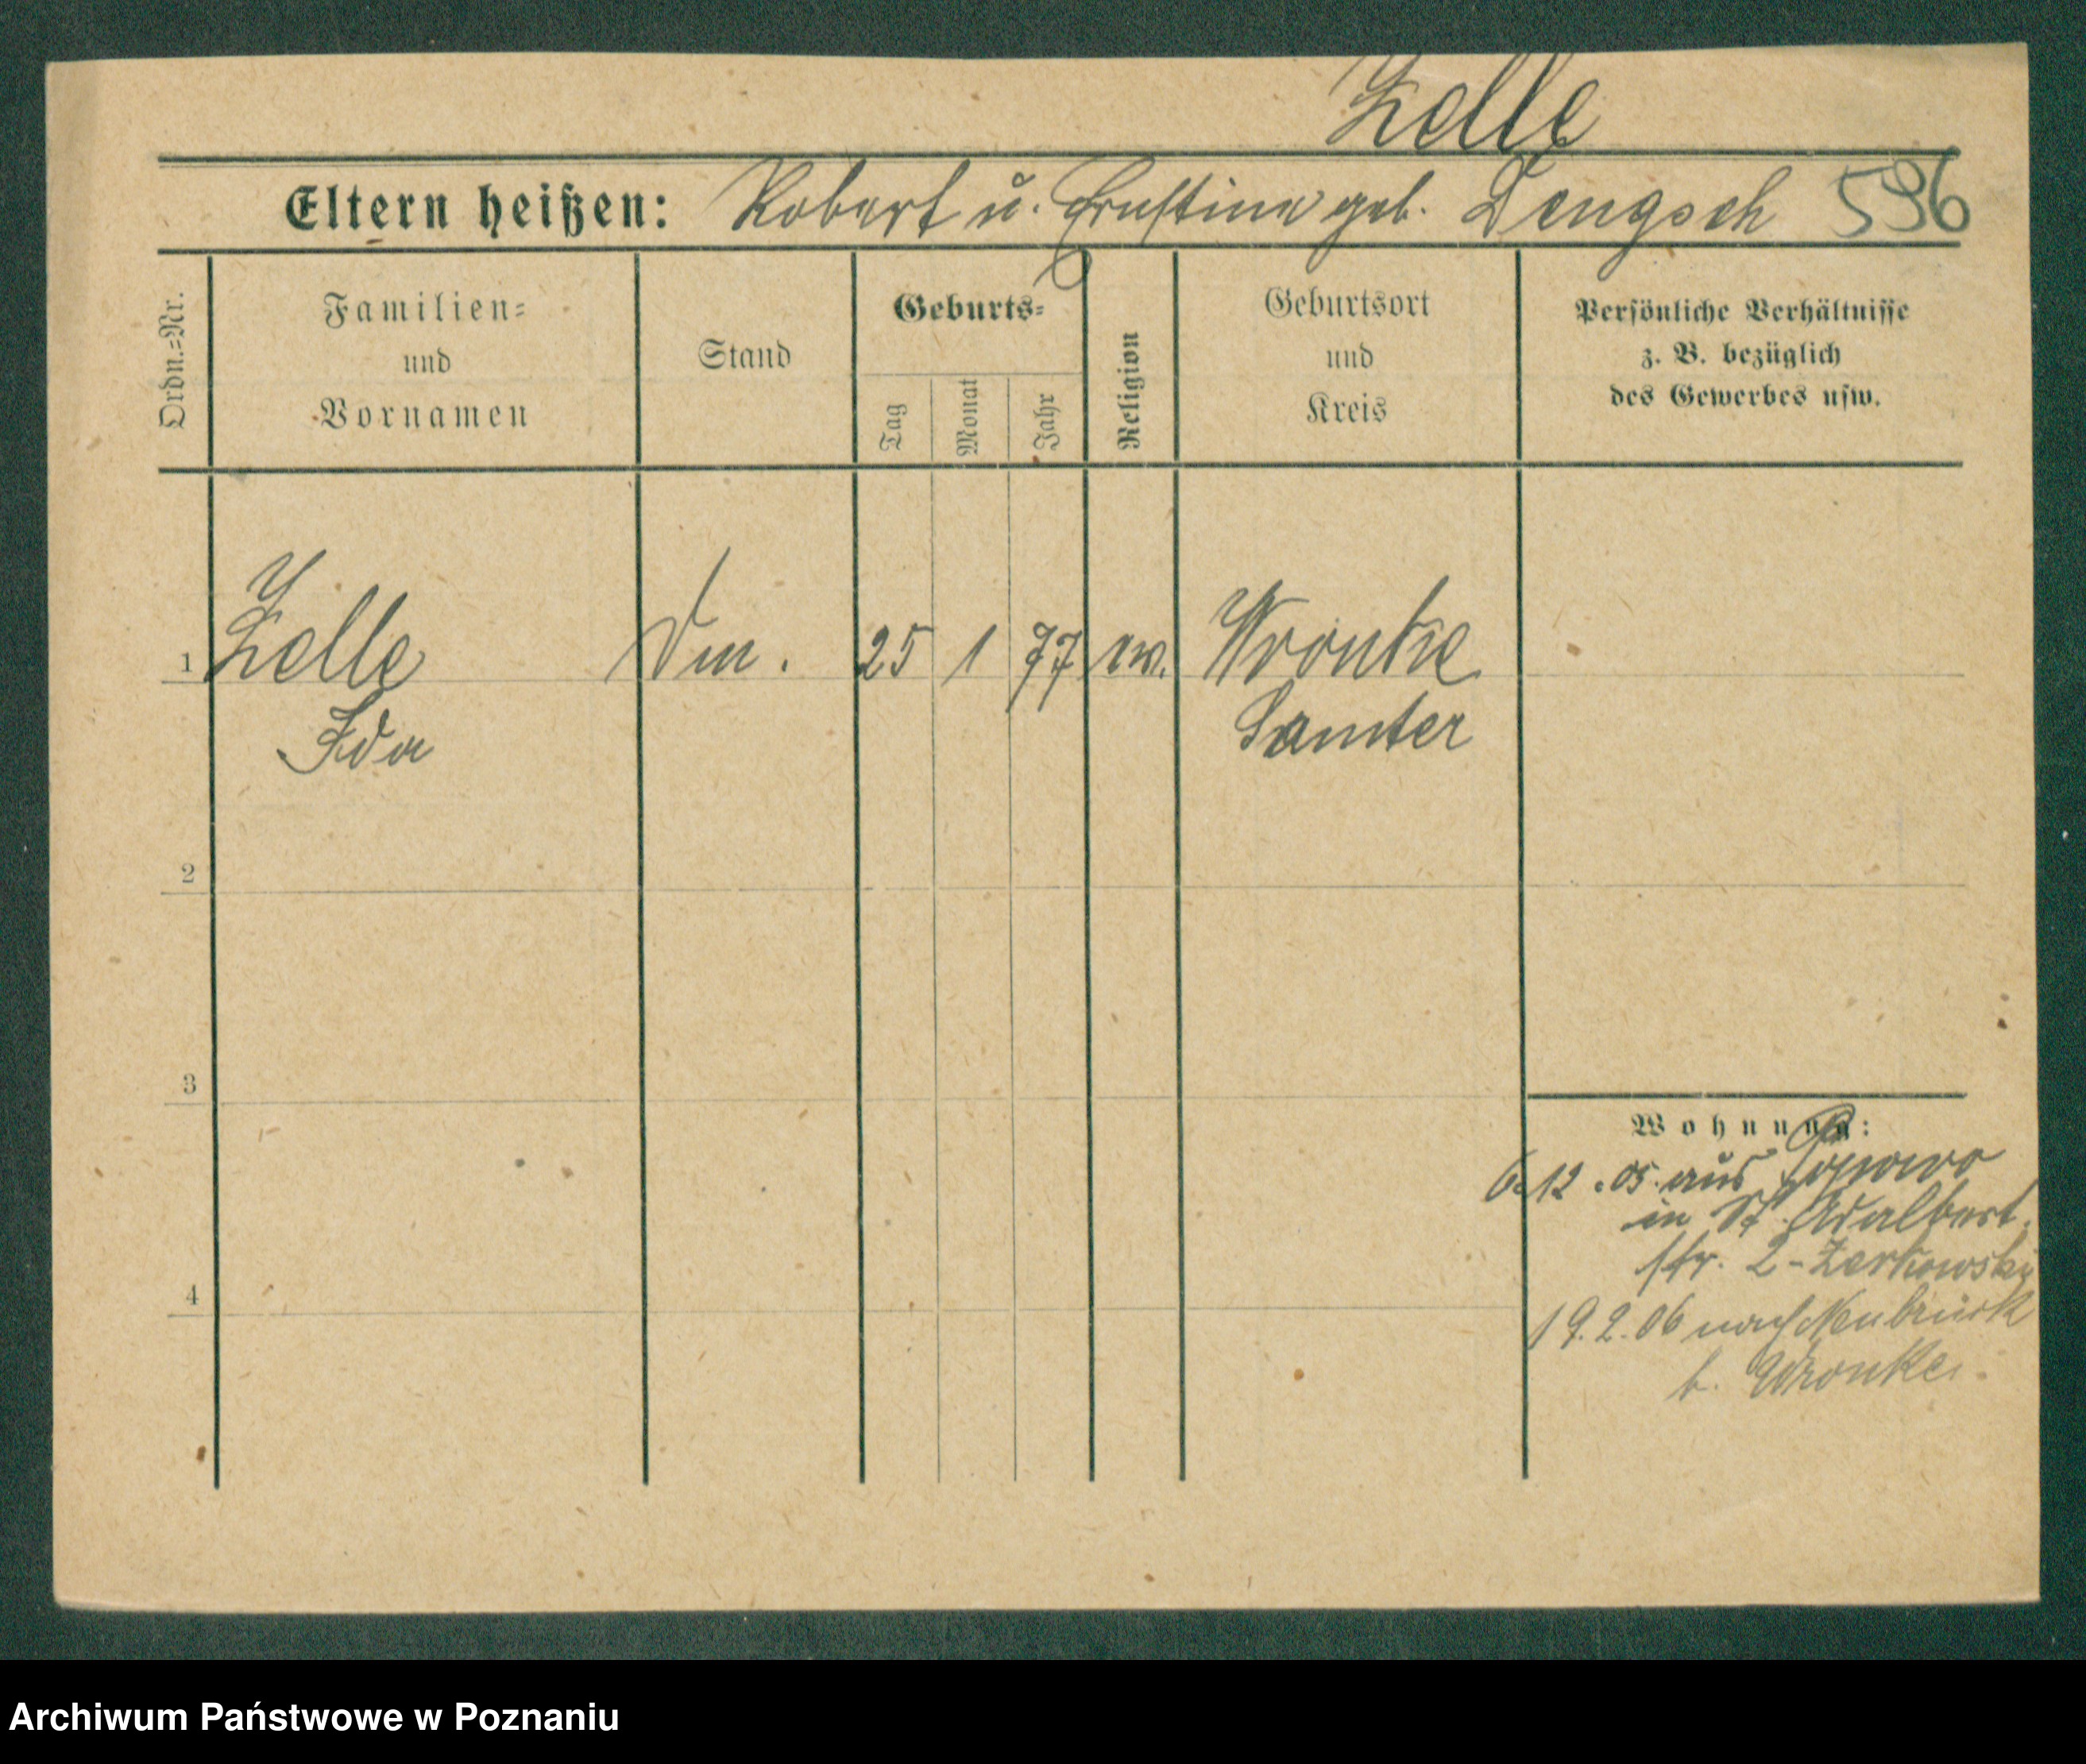 Zelle
Eltern heißen: Robert u. Ernstine geb. Dengsch 596
Ordn.=Nr.
Familien=
und
Vornamen
Stand
Geburts=
Tag
Monat
Jahr
Religion
Geburtsort
und
Kreis
Persönliche Verhältnisse
z. B. bezüglich
des Gewerbes usw.
1 Zelle 25 1 77 ev. Wronke
Ida Samter
2
3
4
Wohnung:
6.12.05. aus
in St. Adalbert.
str. 2 - Zerkowski
19.2.06 nach Neubrück
b. Wronke.
Archiwum Państwowe w Poznaniu